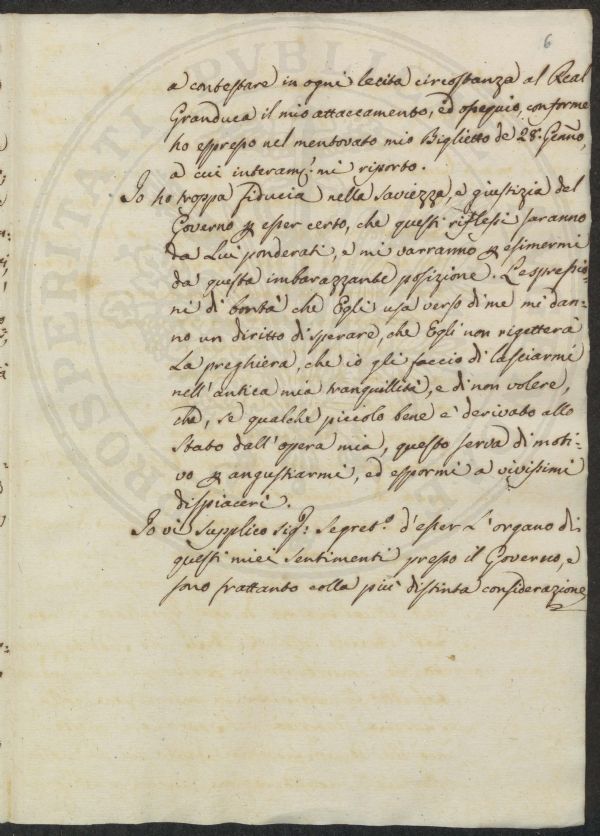 6
a contestare in ogni lecita circostanza al Real
Granduca il mio attaccamento, ed ossequio, conforme
ho espresso nel mentovato mio Biglietto de' 28. Genn̄o,
a cui interam: mi riporto.
Io ho troppa fiducia nella Saviezza, e giustizia del
Governo p esser certo, che questi riflessi saranno
da Lui ponderati, e mi varranno p esimermi
da questa imbarazzante posizione. Le espressio-
ni di bontà che Egli usa verso di me mi dan-
no un diritto di sperare, che Egli non rigetterà
La preghiera, che io gli faccio di lasciarmi
nell'antica mia tranquillità, e di non volere,
che, se qualche piccolo bene è derivato allo
Stato dall'opera mia, questo serva di moti-
vo p angustiarmi, ed espormi a vivissimi
dispiaceri.
Io vi supplico sig: Segret.o d'esser L'organo di
questi miei sentimenti presso il Governo, e
sono frattanto colla più distinta considerazione
PROSPERITATI PVBLI